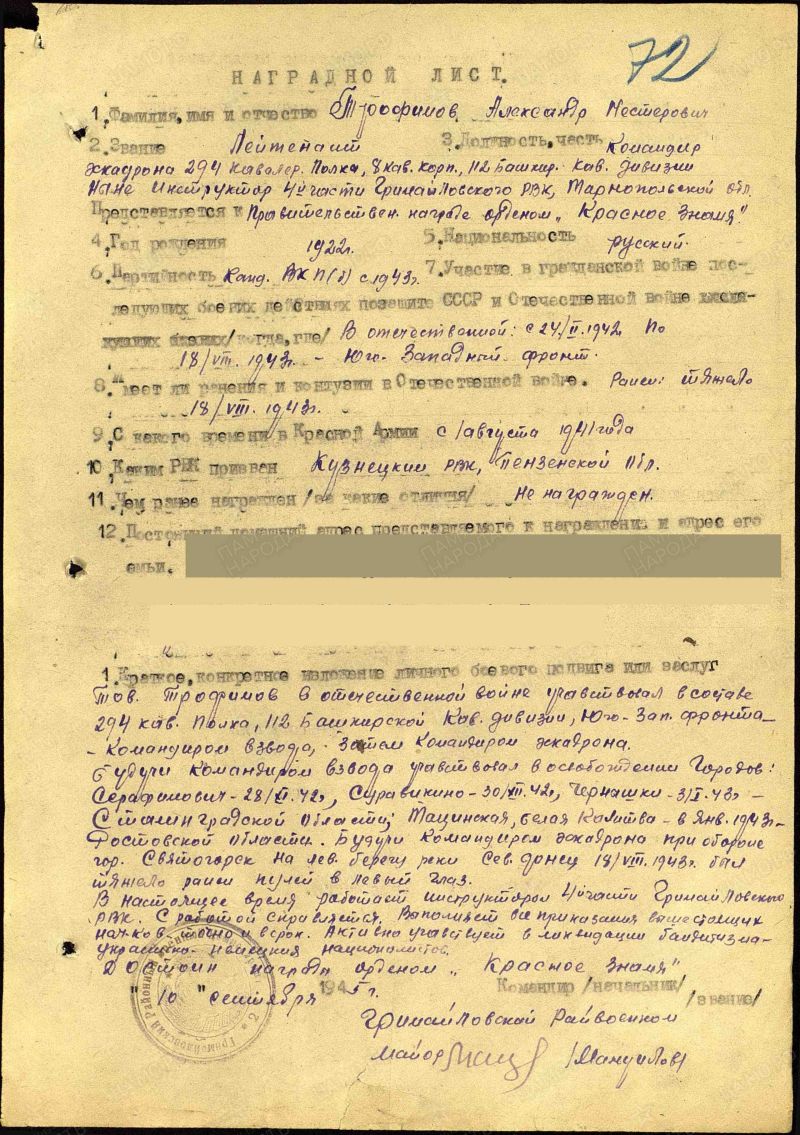 72
НАГРАДНОЙ ЛИСТ.
1. Фамилия, имя и отчество Трофимов Александр Нестерович
2. Звание Лейтенант 3. Должность, часть Командир
эскадрона 294 кавалер. Полка, 8 кав. корп., 112 Башкир. Кав. дивизии
Ныне инструктор 4й части Гримайловского РВК, Тарнопольской обл.
Представляется к Правительствен. награде орденом „Красное Знамя"
4. Год рождения 1922г. 5. Национальность русский.
6. Партийность Канд. ВКП(б) с 1943г. 7. Участие в гражданской войне пос-
ледующих боевых действиях по защите СССР и Отечественной войне
/когда, где/ В отечественной: с 24/II. 1942г. По
18/VIII. 1943г. - Юго-Западный фронт.
8. Имеет ли ранения и контузии в Отечественной войне. Ранен: тяжело
18/VIII. 1943г.
9. С какого времени в Красной Армии с 1 августа 1941 года
10. Каким РВК призван Кузнецким РВК, Пензенской Обл.
11. Чем ранее награжден /за какие отличия/ Не награжден.
12. Постоянный домашний адрес представляемого к награждению и адрес его
семьи.
1. Краткое, конкретное изложение личного боевого подвига или заслуг
Тов. Трофимов в отечественной войне участвовал в составе
294 кав. Полка, 112 Башкирской Кав. дивизии, Юго-Зап. фронта-
- Командиром взвода, Затем Командиром эскадрона.
Будучи Командиром взвода участвовал в освобождении Городов:
Серафимович - 28/XI. 42г., Суравикино - 30/XII. 42г., Чернашки - 3/I. 43г -
Сталинградской области; Тацинская, белая Калитва - в Янв. 1943г-
Ростовской области. Будучи Командиром эскадрона при обороне
гор. Святогорск на лев. берегу реки Сев. донец 18/VIII. 1943г. был
тяжело ранен пулей в левый глаз.
В настоящее время работает инструктором 4й части Гримайловского
РВК. С работой справляется. Выполняет все приказания вышестоящих
нач-ков точно и в срок. Активно участвует в ликвидации бандитизма-
украинско-немецких националистов.
Достоин награды орденом „Красное Знамя"
" 10 " сентября 1945г. Командир /начальник/
/звание/
Гримайловский Райвоенком
майор /Мануилов/